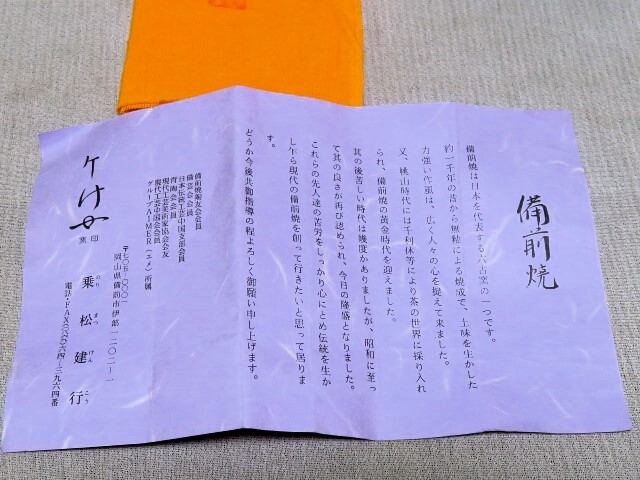 備前焼
備前焼は日本を代表する六古窯の一つです。
約一千年の昔から無釉による焼成で、土味を生かした
力強い作風は、広く人々の心を捉えて来ました。
又、桃山時代には千利休等により茶の世界に採り入れ
られ、備前焼の黄金時代を迎えました。
其の後苦しい時代は幾度かありましたが、昭和に至っ
て其の良さが再び認められ、今日の隆盛となりました。
これらの先人達の苦労をしっかり心にとめ伝統を生か
し乍ら現代の備前焼を創って行きたいと思って居りま
す。
どうか今後共御指導の程よろしく御願い申し上げます。
備前焼陶友会会員
備芸会会員
日本伝統工芸中国支部会員
青陶会会員
現代工芸美術家協会会友
現代工芸中国会会員
グループAIMER(エメ)所属
〒七〇五-〇〇〇一
岡山県備前市伊部一二〇二-一
窯印
乗松建行
のりまつけんこう
電話・FAX(〇八六九)六四-三九六四番